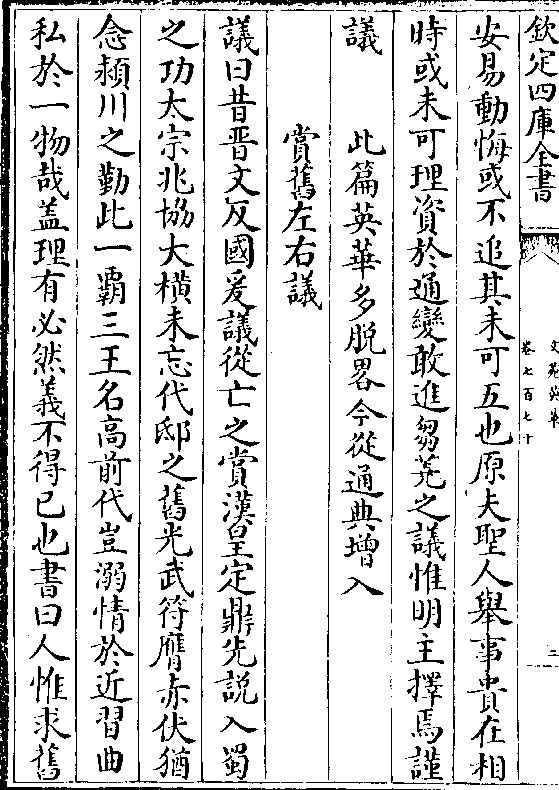 欽定四庫全書
文苑英華
卷七百七十
三
安易動悔或不追其未可五也原夫聖人舉事貴在相
時或未可理資於通變敢進芻蕘之議惟明主擇焉謹
議　此篇英華多脫畧今從通典增入
賞舊左右議
議曰昔晋文反國爰議從亡之賞漢皇定鼎先說入蜀
之功太宗兆協大橫未忘代邸之舊光武符膺赤伏猶
念潁川之勤此一覇三王名高前代豈溺情於近習曲
私於一物哉盖理有必然義不得已也書曰人惟求舊